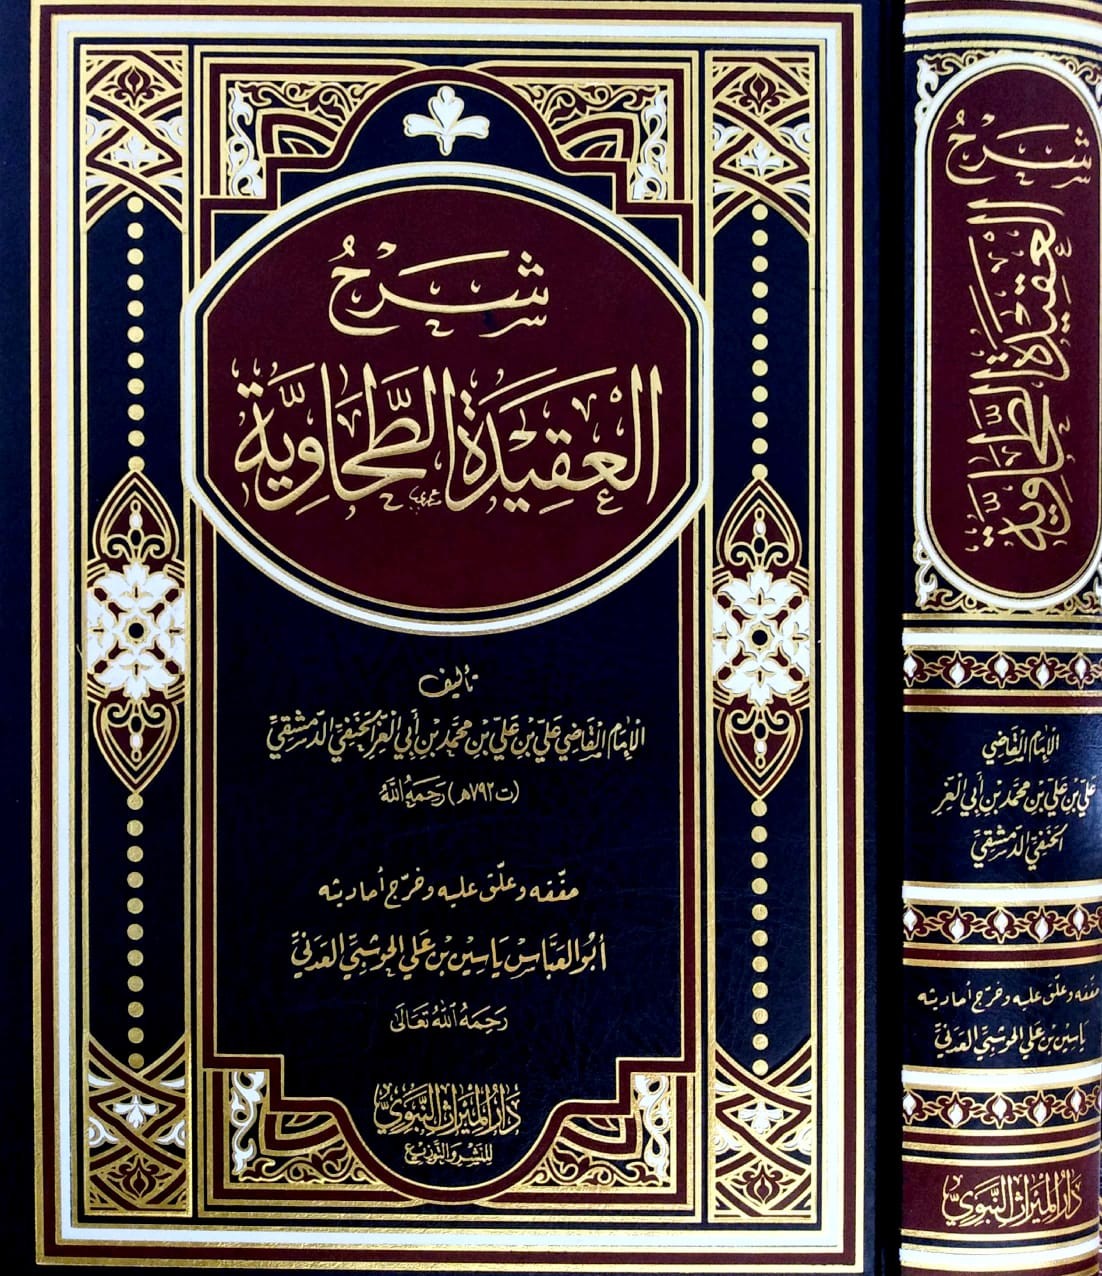 شَرْحُ
العَقِيدَةِ الطَّحَاوِيَّةِ
تأليف
الإمام القَاضِي عَلِيِّ بْنِ عَلِيِّ بْنِ مُحَمَّدِ بْنِ أَبِي الْعِزِّ الحَنَفِيِّ الدِّمَشْقِيِّ
(ت ٧٩٢هـ) رَحِمَهُ اللَّهُ
حقّقه وعلّق عليه وخرّج أحاديثه
أبُو العَبَّاسِ يَاسِين بْن عَلي الحَوشَبِيّ العَدَنِيّ
رَحِمَهُ اللهُ تَعَالَى
دَارُ المِيْرَاثِ النَّبَوِيِّ
لِلنَّشْرِ وَالتَّوْزِيْعِ
شَرْحُ
العَقِيدَةِ الطَّحَاوِيَّةِ
الإمام القَاضِي
عَلِيِّ بْنِ عَلِيِّ بْنِ مُحَمَّدِ بْنِ أَبِي الْعِزِّ
الحَنَفِيِّ الدِّمَشْقِيِّ
حقّقه وعلّق عليه وخرّج أحاديثه
يَاسِين بْن عَلي الحَوشَبِيّ العَدَنِيّ
دَارُ المِيْرَاثِ النَّبَوِيِّ